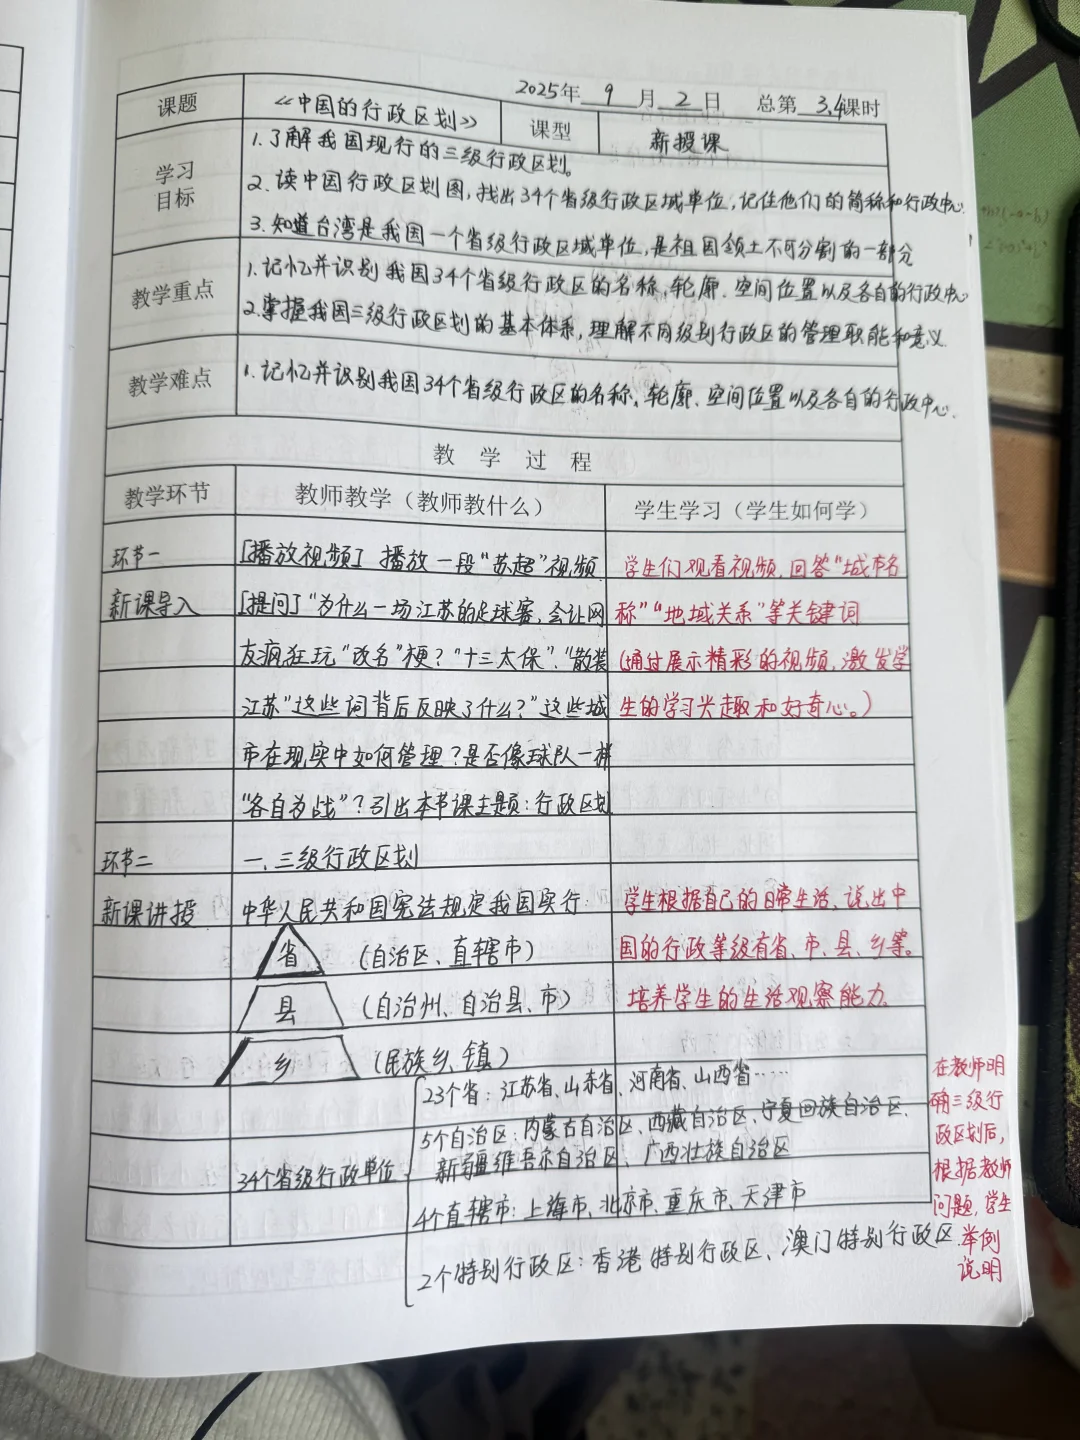 2025年 9 月 2 日 总第 3.4 课时
课题 《中国的行政区划》 课型 新授课
学习目标
1.了解我国现行的三级行政区划。
2.读中国行政区划图,找出34个省级行政区域单位,记住他们的简称和行政中心.
3.知道台湾是我国一个省级行政区域单位,是祖国领土不可分割的一部分
教学重点
1.记忆并识别我国34个省级行政区的名称,轮廓、空间位置以及各自的行政中心
2.掌握我国三级行政区划的基本体系,理解不同级别行政区的管理职能和意义.
教学难点
1.记忆并识别我国34个省级行政区的名称、轮廓、空间位置以及各自的行政中心.
教学过程
教学环节 教师教学(教师教什么) 学生学习(学生如何学)
环节一
新课导入
[播放视频] 播放一段“苏超”视频
[提问]“为什么一场江苏的足球赛,会让网
友疯狂玩“改名”梗?“十三太保”、“散装
江苏”这些词背后反映了什么?”这些城
市在现实中如何管理?是否像球队一样
“各自为战”?引出本节课主题:行政区划
学生们观看视频,回答“城市名
称”“地域关系”等关键词
(通过展示精彩的视频,激发学
生的学习兴趣和好奇心。)
环节二
新课讲授
一、三级行政区划
中华人民共和国宪法规定我国实行:
省 (自治区、直辖市)
县 (自治州、自治县、市)
乡 (民族乡、镇)
学生根据自己的日常生活,说出中
国的行政等级有省、市、县、乡等。
培养学生的生活观察能力。
34个省级行政单位
23个省:江苏省、山东省、河南省、山西省……
5个自治区:内蒙古自治区、西藏自治区、宁夏回族自治区、
新疆维吾尔自治区、广西壮族自治区
4个直辖市:上海市、北京市、重庆市、天津市
2个特别行政区:香港特别行政区、澳门特别行政区
在教师明
确三级行
政区划后,
根据教师
问题,学生
举例
说明